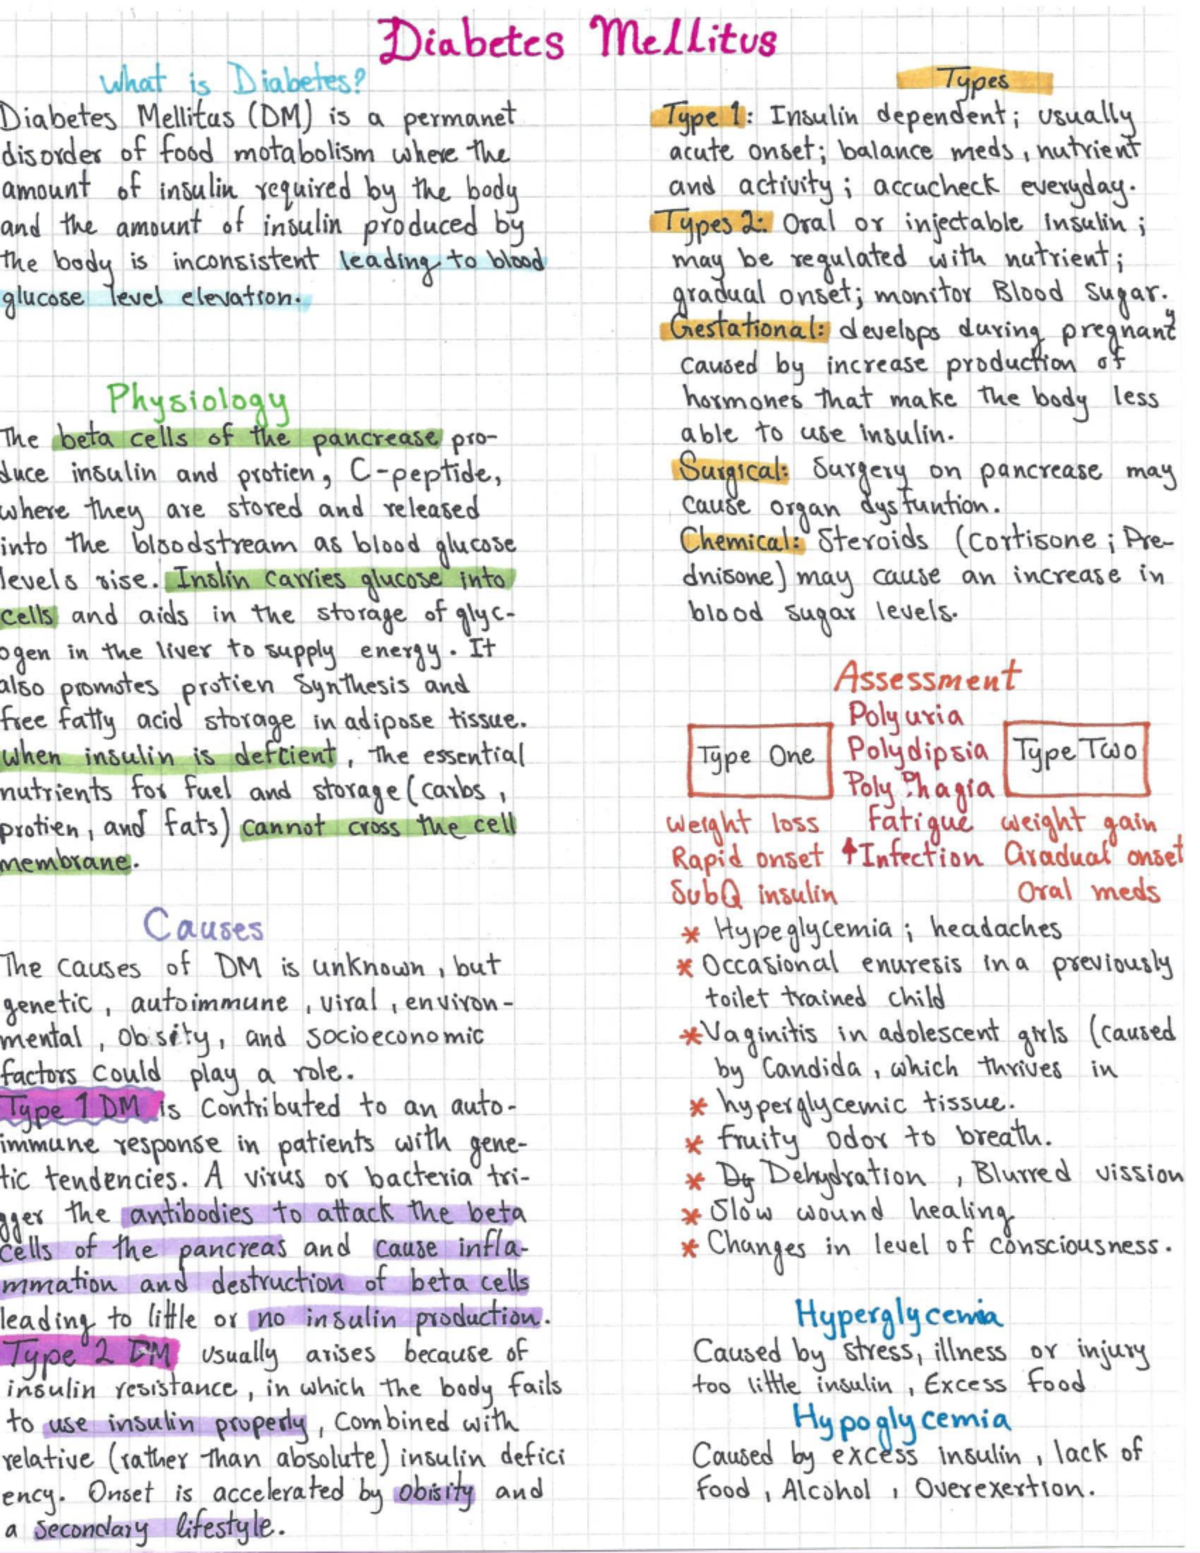 Diabetes Mellitus
What is Diabetes?
Diabetes Mellitus (DM) is a permanet
disorder of food motabolism where the
amount of insulin required by the body
and the amount of insulin produced by
the body is inconsistent leading to blood
glucose level elevation.
Physiology
The beta cells of the pancrease pro-
duce insulin and protien, C-peptide,
where they are stored and released
into the bloodstream as blood glucose
levels rise. Inslin carries glucose into
cells and aids in the storage of glyc-
ogen in the liver to supply energy. It
also promotes protien Synthesis and
free fatty acid storage in adipose tissue.
when insulin is defcient, the essential
nutrients for fuel and storage (carbs,
protien, and fats) cannot cross the cell
membrane.
Causes
The causes of DM is unknown, but
genetic, autoimmune, viral, environ-
mental, obsity, and socioeconomic
factors could play a role.
Type 1 DM is contributed to an auto-
immune response in patients with gene-
tic tendencies. A virus or bacteria tri-
gger the antibodies to attack the beta
cells of the pancreas and cause infla-
mmation and destruction of beta cells
leading to little or no insulin production.
Type 2 DM usually arises because of
insulin resistance, in which the body fails
to use insulin properly, combined with
relative (rather than absolute) insulin defici
ency. Onset is accelerated by obisity and
a secondary lifestyle.
Types
Type 1: Insulin dependent; usually
acute onset; balance meds, nutrient
and activity; accucheck everyday.
Types 2: Oral or injectable insulin;
may be regulated with nutrient;
gradual onset; monitor Blood Sugar.
Gestational: develops during pregnanty
caused by increase production of
hormones that make the body less
able to use insulin.
Surgical: Surgery on pancrease may
cause organ dysfuntion.
Chemical: Steroids (Cortisone; Pre-
dnisone) may cause an increase in
blood sugar levels.
Assessment
Polyuria
Type One Polydipsia Type Two
Poly Phagia
weight loss fatigue weight gain
Rapid onset ↑Infection Gradual onset
SubQ insulin Oral meds
* Hypeglycemia; headaches
* Occasional enuresis in a previously
toilet trained child
* Vaginitis in adolescent girls (caused
by Candida, which thrives in
* hyperglycemic tissue.
* fruity odor to breath.
* Dy Dehydration, Blurred vission
* Slow wound healing
* Changes in level of consciousness.
Hyperglycemia
Caused by stress, illness or injury
too little insulin, Excess food
Hypoglycemia
Caused by excess insulin, lack of
food, Alcohol, Overexertion.